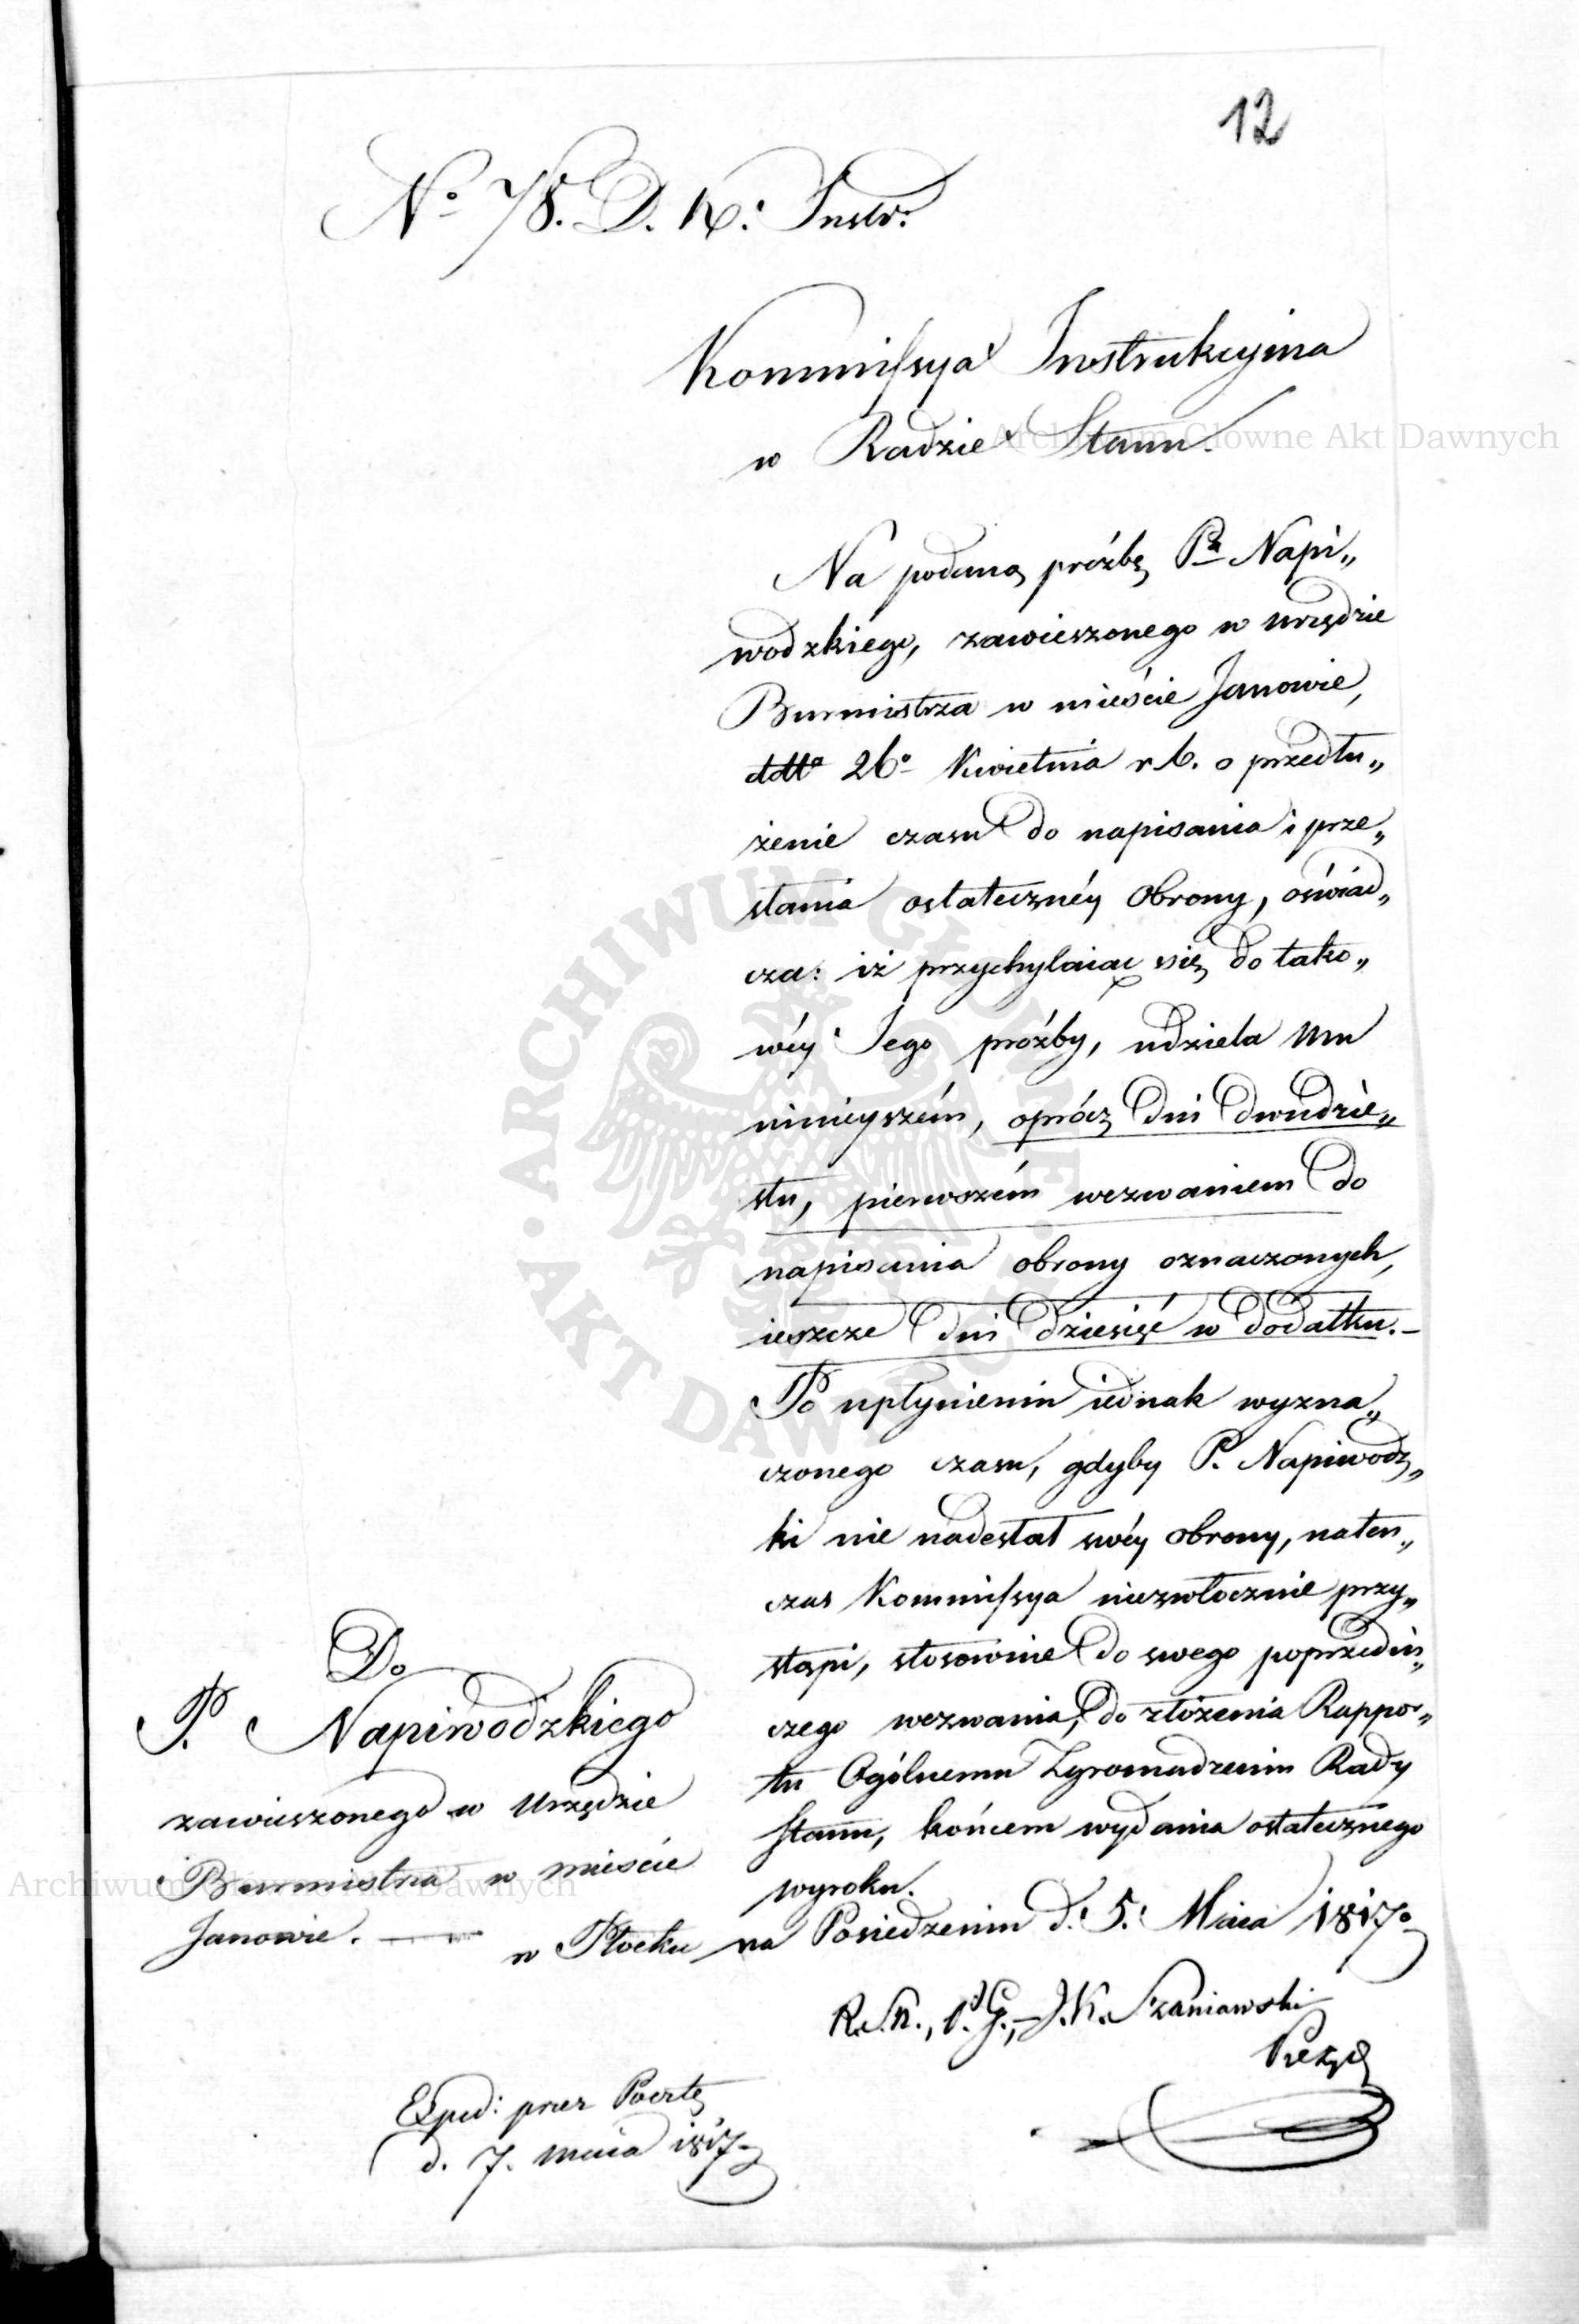 12
No 78. D. K: Instr:
Kommissya Instrukcyina
w Radzie Stanu.
Na podaną próźbę Pa Napi„
wodzkiego, zawieszonego w urzędzie
Burmistrza w mieście Janowie,
ddto 26o Kwietnia r b. o przedłu„
żenie czasu do napisania i prze„
słania ostatecznéy Obrony, oświad„
cza: iż przychylaiąc się do tako„
wéy Jego próźby, udziela Mu
ninieyszém, oprócz Dni dwudzie„
stu, pierwszém wezwaniem do
napisania obrony oznaczonych,
ieszcze Dni dziesięć w dodatku.—
Po upłynieniu iednak wyzna„
czonego czasu, gdyby P. Napiwodz„
ki nie nadesłał swéy obrony, naten„
czas Kommissya niezwłocznie przy„
stąpi, stosownie do swego poprzedni„
czego wezwania, do złożenia Rappor„
tu Ogólnemu Zgromadzeniu Rady
Stanu, końcem wydania ostatecznego
wyroku.
na Posiedzeniu d: 5: Maia 1817o
R.S.N., P.G., J.K. Szaniawski
Prezyd
Do
P. Napiwodzkiego
zawieszonego w Urzędzie
Burmistrza w mieście
Janowie. — w Płocku
Exped: przez Pocztę
d. 7. Maia 1817
Archiwum Główne Akt Dawnych
ARCHIWUM GŁÓWNE AKT DAWNYCH
Archiwum Główne Akt Dawnych